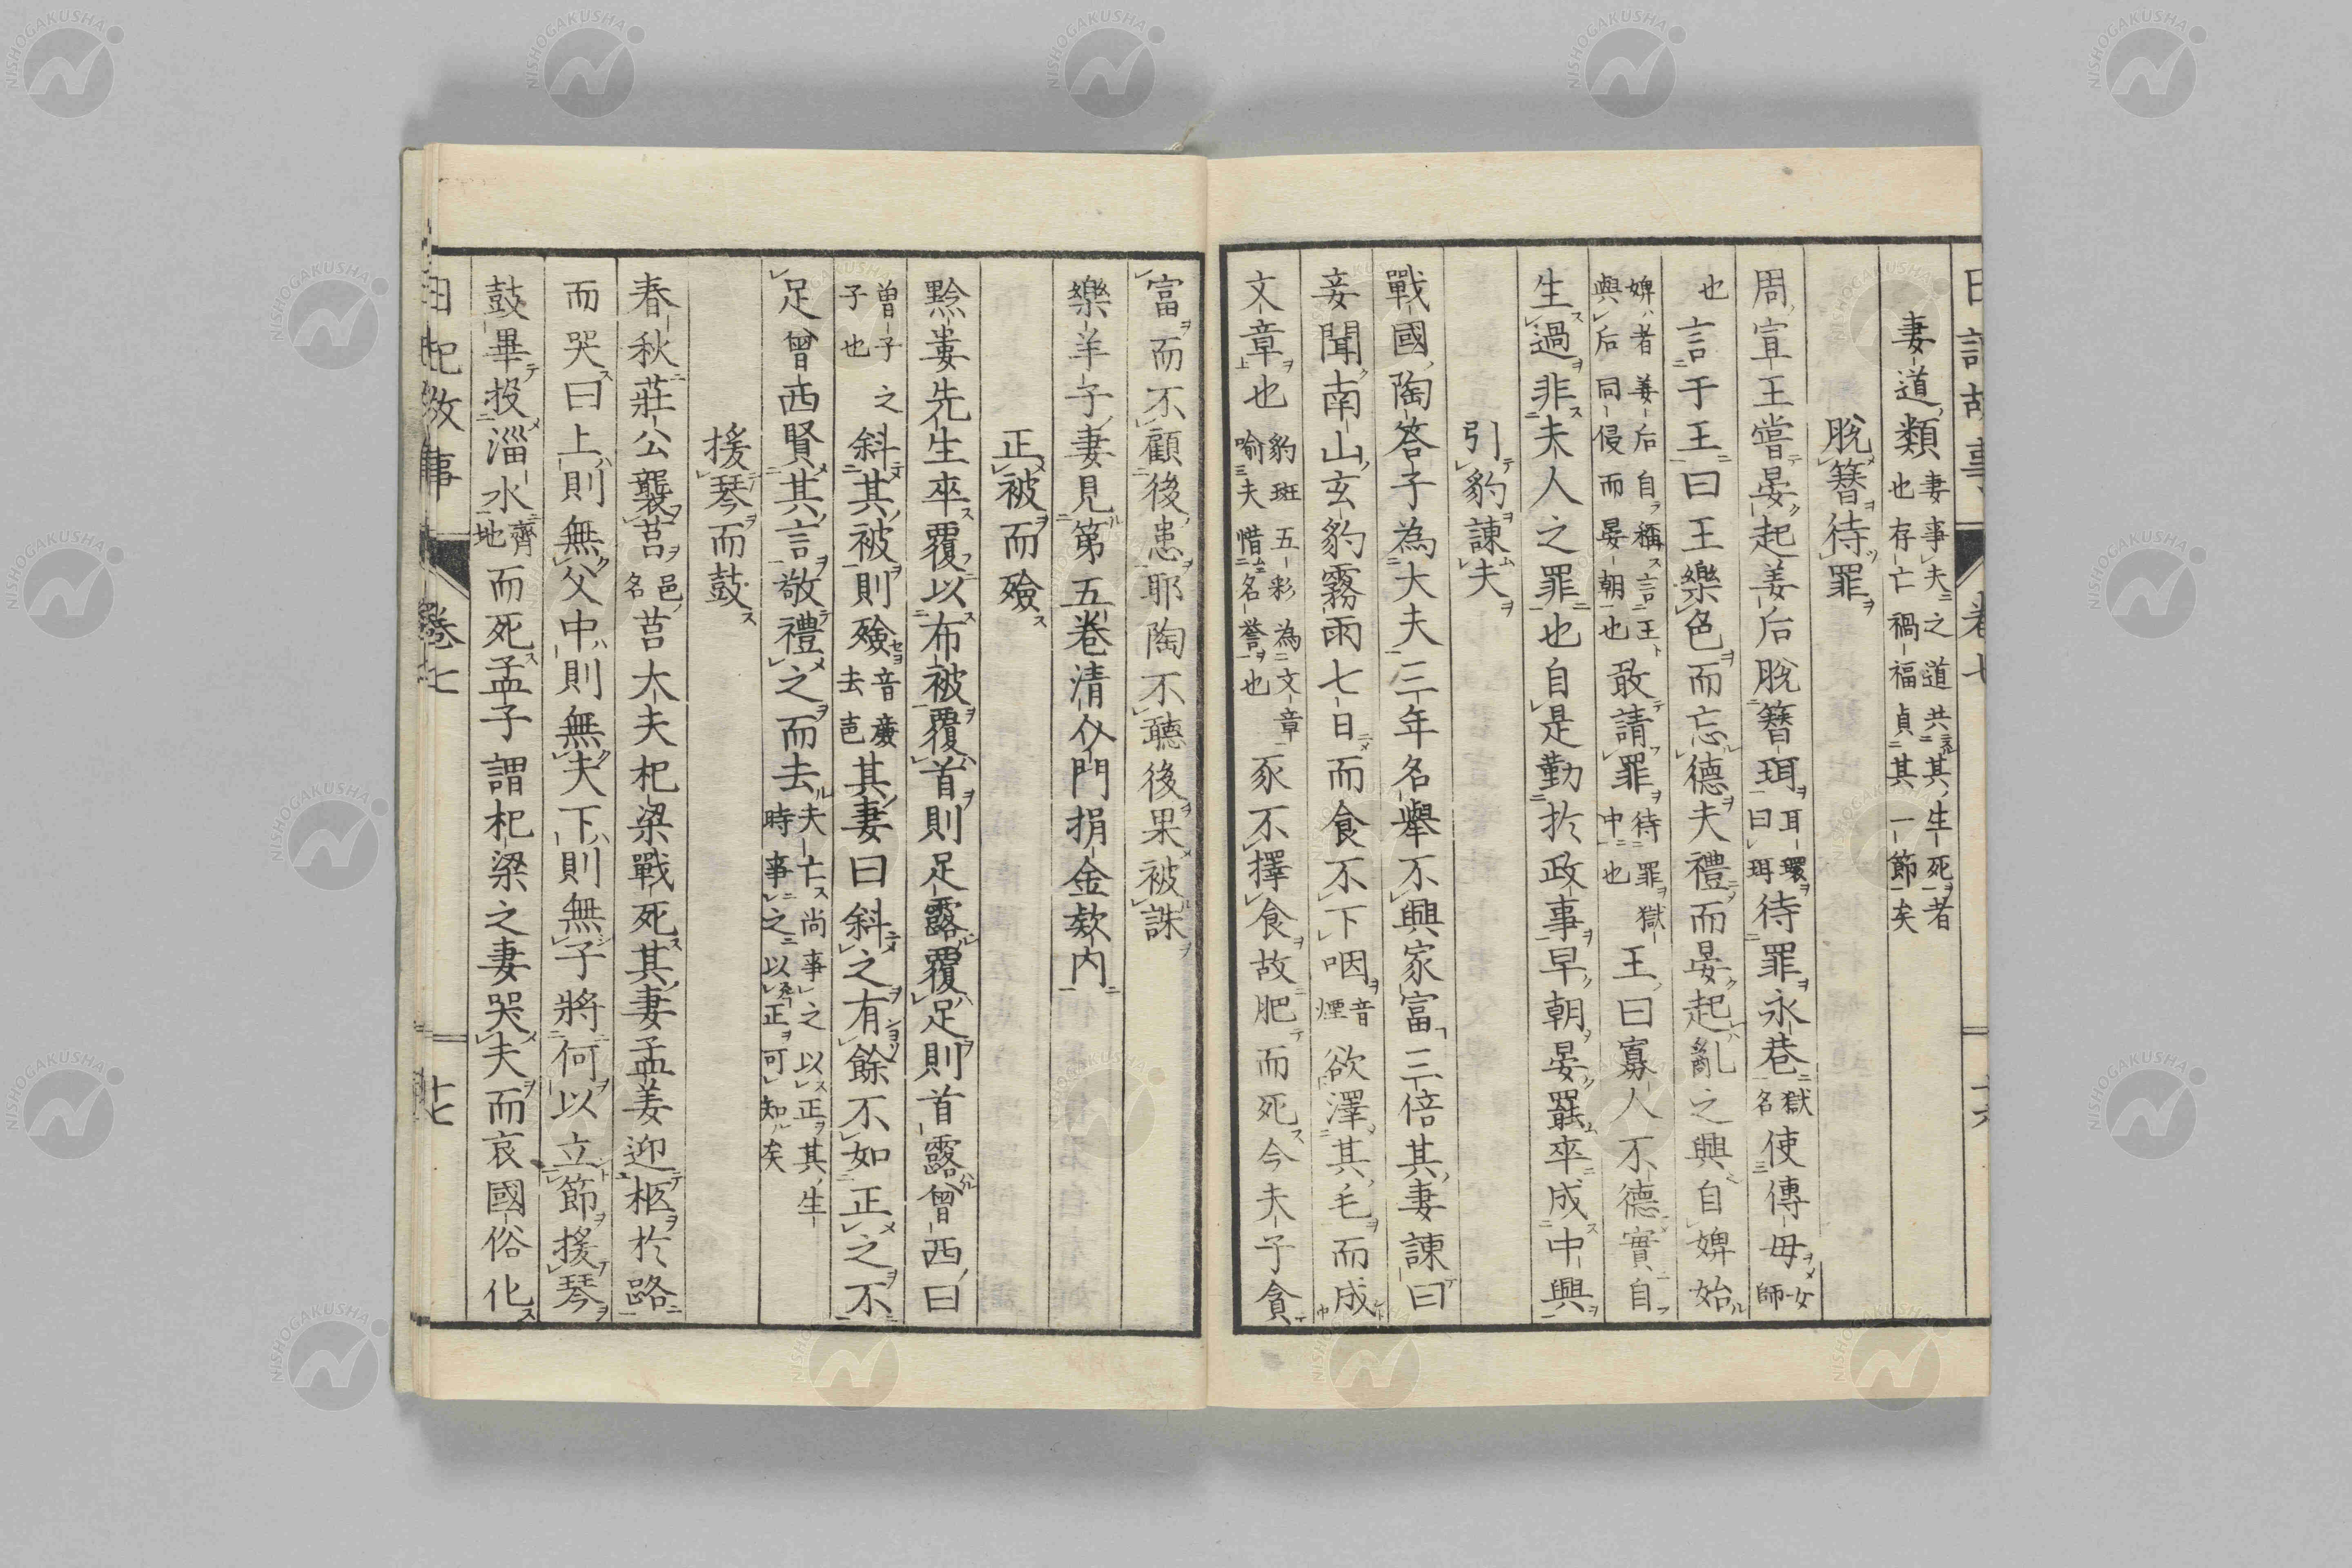 日記故事 卷七 十六
妻道類 妻事夫之道共其生死者也存亡禍福貞其一節矣
脫簪待罪
周宣王嘗晏起姜后脫簪珥耳環曰珥待罪永巷獄名使傳母女師
也言于王曰王樂色而忘德夫禮而晏起亂之興自婢始
婢者姜后自稱言王與后同侵而晏朝也敢請罪待罪獄中也王曰寡人不德實自
生過非夫人之罪也自是勤於政事早朝晏罷卒成中興
引豹諫夫
戰國陶答子為大夫三年名舉不興家富三倍其妻諫曰
妾聞南山玄豹霧雨七日而食不下咽音煙欲澤其毛而成
文章也豹斑五彩為文章喻夫惜名譽也豕不擇食故肥而死今夫子貪
富而不顧後患耶陶不聽後果被誅
樂羊子妻見第五卷清介門捐金欸內
正被而殮
黔婁先生卒覆以布被覆首則足露覆足則首露曾西曰
曾子子也之斜其被則殮音廣去邑其妻曰斜之有餘不如正之不
足曾西賢其言敬禮之而去夫亡尚事之以正其生時事之以正可知矣
援琴而鼓
春秋莊公襲莒邑名莒大夫杞梁戰死其妻孟姜迎柩於路
而哭曰上則無父中則無夫下則無子將何以立節援琴
鼓畢投淄水齊地而死孟子謂杞梁之妻哭夫而哀國俗化
日記故事 卷七 十七